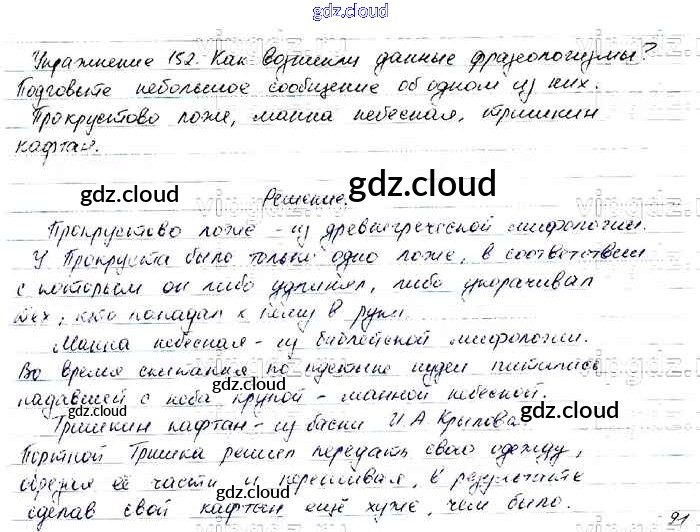 gdz.cloud
Упражнение 152. Как возникли данные фразеологизмы?
Подговьте небольшое сообщение об одном из них.
Прокрустово ложе, манна небесная, тришкин
кафтан.
gdz.cloud
gdz.cloud
Решение.
Прокрустово ложе - из древнегреческой мифологии.
У Прокруста было только одно ложе, в соответствии
с которым он либо удлинял, либо укорачивал
тех, кто попадал к нему в руки.
gdz.cloud
gdz.cloud
Манна небесная - из библейской мифологии.
Во время скитания по пустыне иудеи питались
падавшей с неба крупой - манной небесной.
gdz.cloud
gdz.cloud
gdz.cloud
Тришкин кафтан - из басни И.А Крылова.
Портной Тришка решил передать свою одежду,
обрезая её части и перешивал, в результате
сделав свой кафтан ещё хуже, чем было.
gdz.cloud
gdz.cloud
21